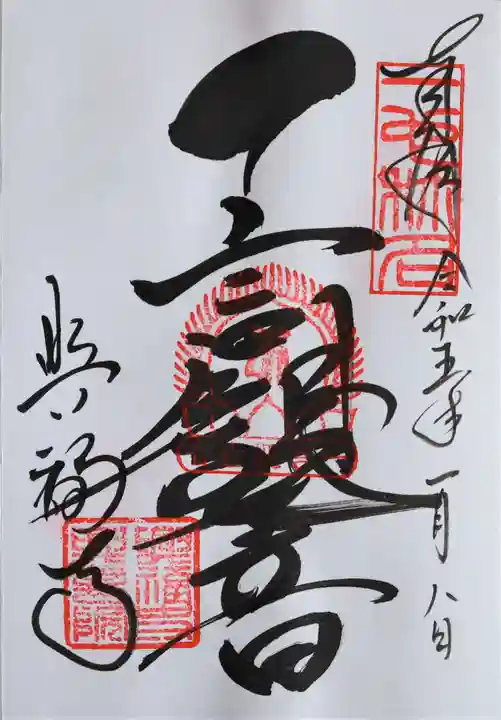 奉拝 令和五年一月八日
一言観音
興福寺